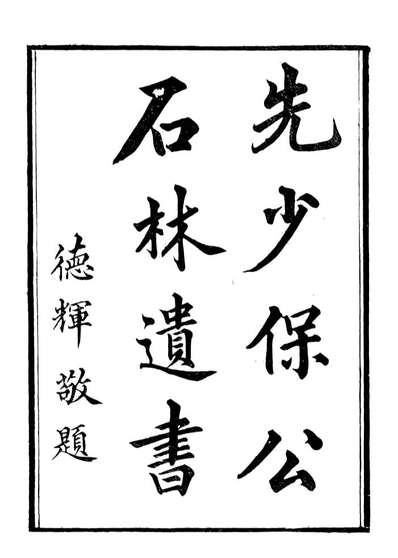 先少保公
石林遺書
德輝敬題